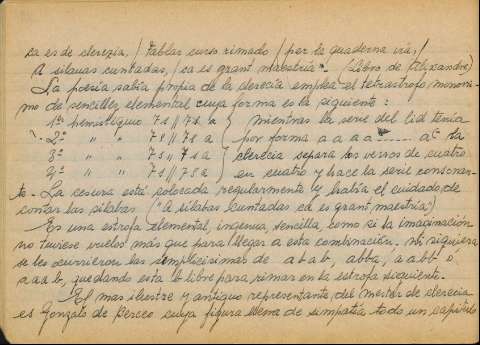 ca es de clerezia, / fablar curso rimado / per la quaderna via, /
A silauas cuntadas, / ca es grant maestria". (Libro de Alexandre)
La poesía sabia propia de la clerecía emplea el tetrastrofo monorri-
mo de sencillez elemental cuya forma es la siguiente:
1er hemistiquio 7 s // 7 s. a { mientras la serie del Cid tenía
2º " " 7 s // 7 s a por forma a a a a ...... aª la
3º " " 7 s // 7 s a clerecía separa los versos de cuatro
4º " " 7 s // 7 s a en cuatro y hace la serie consonan-
te - La cesura está colocada regularmente y había el cuidado de
contar las sílabas. ("A sílabas cuntadas ca es grant maestria")
Es una estrofa elemental, ingenua, sencilla, como si la imaginación
no tuviese vuelos más que para llegar a esta combinación. Ni siquiera
se les ocurrieron las simplicisimas de a b a b, a b b a, a a b b o
a a a b, quedando esta b libre para rimar en la estrofa siguiente.
El mas ilustre y antiguo representante del mester de clerecia
es Gonzalo de Berceo cuya figura llena de simpatía todo un capítulo